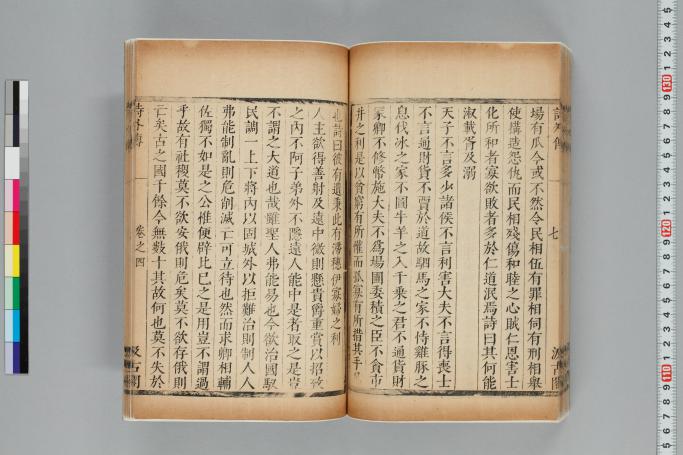 場有瓜今或不然令民相伍有罪相伺有刑相舉
使搆造怨仇而民相殘傷和睦之心賊仁恩害士
化所和者寡欲敗者多於仁道泯焉詩曰其何能
淑載胥及溺
天子不言多少諸侯不言利害大夫不言得喪士
不言通財貨不賈於道故駟馬之家不恃雞豚之
息伐冰之家不圖牛羊之入千乘之君不通貨財
冢卿不修幣施大夫不為場圃委積之臣不貪市
井之利是以貧窮有所懽而孤寡有所措其手
也詩曰彼有遺秉此有滯穗伊寡婦之利
人主欲得善射及遠中微則懸貴爵重賞以招致
之內不阿子弟外不隱遠人能中是者取之是豈
不謂之大道也哉雖聖人弗能易也今欲治國馭
民調一上下將內以固城外以拒難治則制人人
弗能制亂則危削滅亡可立待也然而求卿相輔
佐獨不如是之公惟便辟比巳之是用豈不謂過
乎故有社稷莫不欲安俄則危矣莫不欲存俄則
亡矣古之國千餘今無數十其故何也莫不失於
詩外傳
卷之四
汲古閣
七